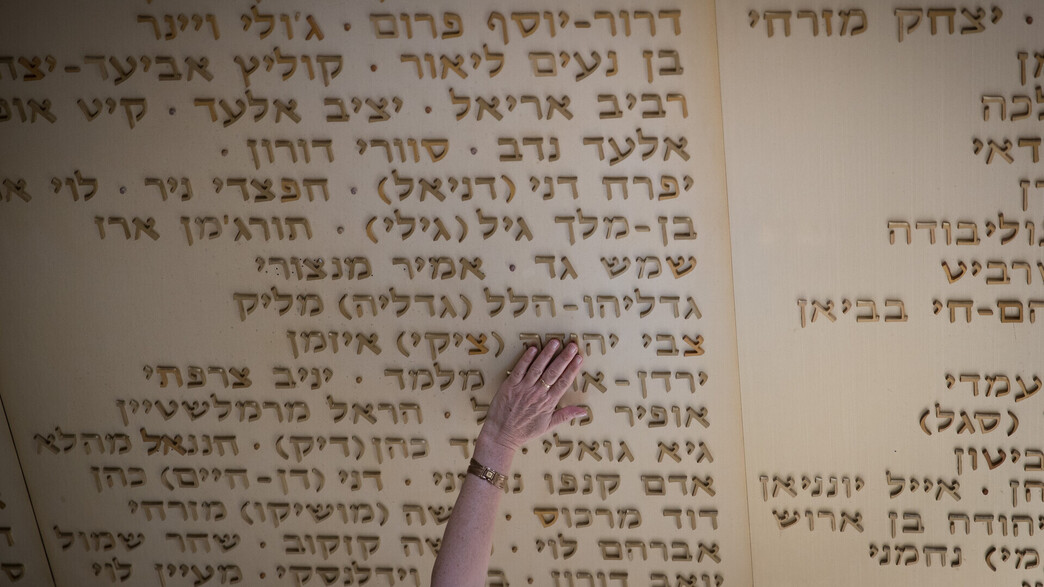 דרור-יוסף פרום · ג'ולי ויינר
בן נעים ליאור · קוליץ אביעד-יצח
רביב אריאל · יציב אלעד · קיט אופ
אלעד נדב · סוורי דורון ·
יפרח דני (דניאל) · חפצדי ניר · לוי
בן-מלך גיל (גילי) · תורג'מן ארז
שמש גד · אמיר מנצורי
גדליהו-הלל (גדליה) מליק
צבי (ציקי) איזמן
מלמד · יניב צרפתי
אופיר · הראל מרמלשטיין
גיא גואלי · כהן (דיק) · חננאל מהלא
אדם קנפו · דני (דן-חיים) כהן
דוד מרכוס · (מושיקו) מזרחי
אברהם לוי · קזקוב · שחר שמול
יואב דורון · וידלנסקי · מעיין לוי
· יצחק מזרחי
גוליבודה
שרביט
-חי בביאן
עמדי
(סגל)
ביטון
· אייל יונניאן
יהודה בן ארוש
נחמני